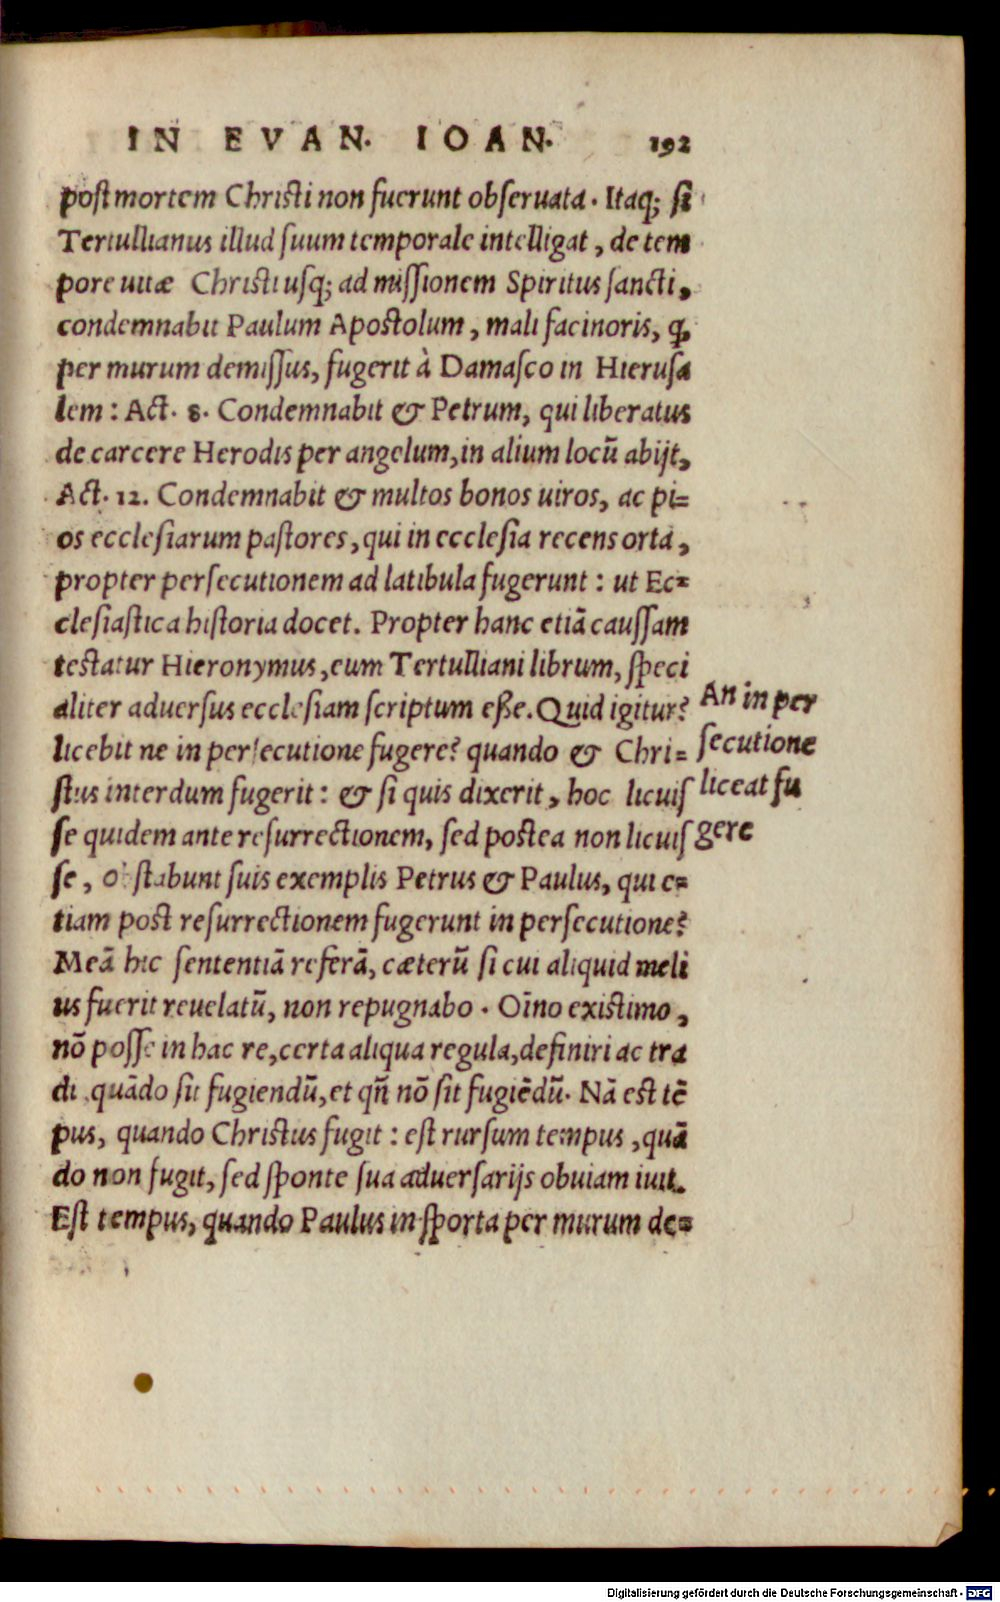 IN EVAN. IOAN. 192
post mortem Christi non fuerunt obseruata. Itaq; si
Tertullianus illud suum temporale intelligat, de tem
pore uitæ Christi usq; ad missionem Spiritus sancti,
condemnabit Paulum Apostolum, mali facinoris, ꝙ
per murum demissus, fugerit à Damasco in Hierusa
lem: Act. 8. Condemnabit & Petrum, qui liberatus
de carcere Herodis per angelum, in alium locũ abijt,
Act. 12. Condemnabit & multos bonos uiros, ac pi=
os ecclesiarum pastores, qui in ecclesia recens orta,
propter persecutionem ad latibula fugerunt: ut Ec=
clesiastica historia docet. Propter hanc etiã caussam
testatur Hieronymus, eum Tertulliani librum, speci
aliter aduersus ecclesiam scriptum eße. Quid igitur?
licebit ne in persecutione fugere? quando & Chri=
stus interdum fugerit: & si quis dixerit, hoc licuis
se quidem ante resurrectionem, sed postea non licuis
se, obstabunt suis exemplis Petrus & Paulus, qui e=
tiam post resurrectionem fugerunt in persecutione?
Meã hic sententiã referã, cæterũ si cui aliquid meli
us fuerit reuelatũ, non repugnabo. Oĩno existimo,
nõ posse in hac re, certa aliqua regula, definiri ac tra
di, quãdo sit fugiendũ, et qñ nõ sit fugiẽdũ. Nã est tẽ
pus, quando Christus fugit: est rursum tempus, quã
do non fugit, sed sponte sua aduersarijs obuiam iuit.
Est tempus, quando Paulus in sporta per murum de=
An in per
secutione
liceat fu
gere
Digitalisierung gefördert durch die Deutsche Forschungsgemeinschaft - DFG